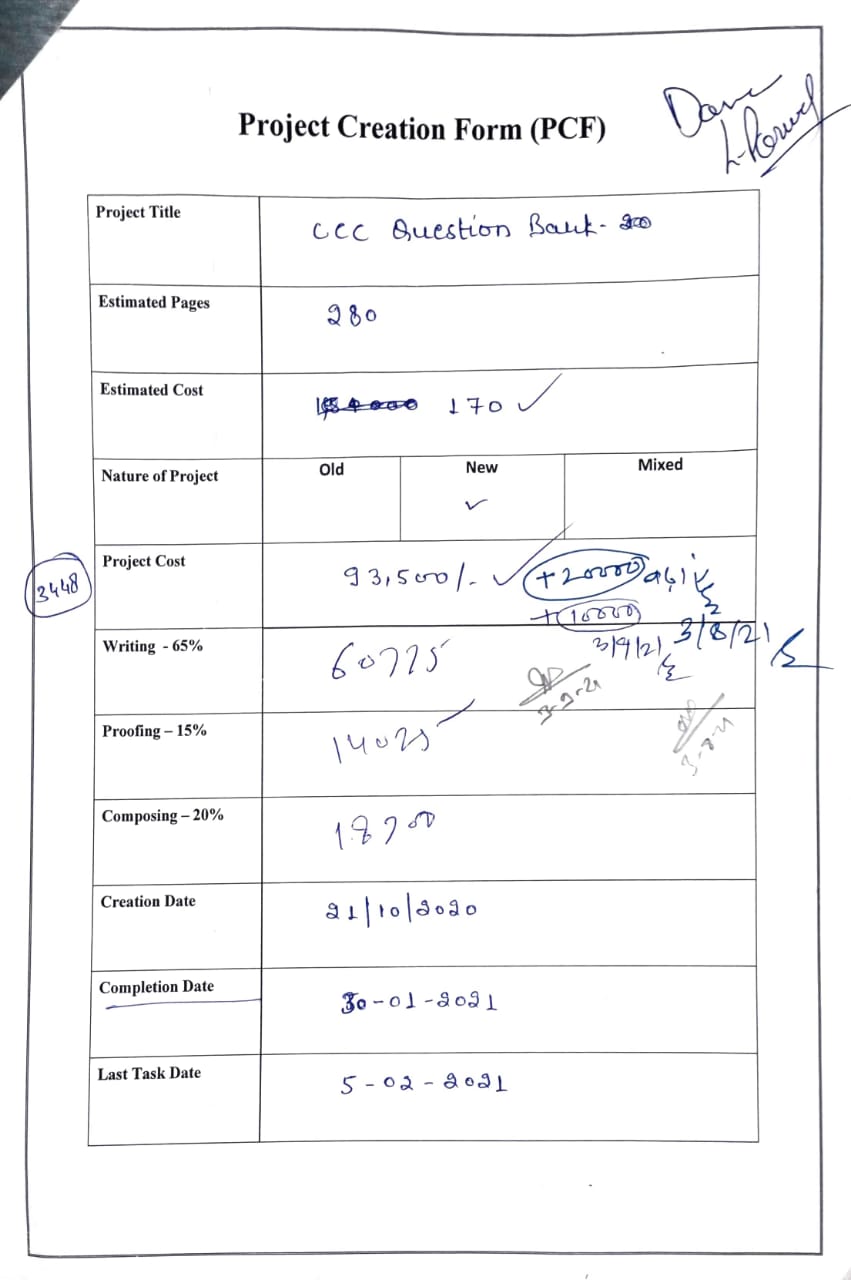 Project Creation Form (PCF)
Project Title
CCC Question Bank-
Estimated Pages
280
Estimated Cost
170 ✓
Nature of Project
Old
New
Mixed
✓
Project Cost
93,500/- ✓
+20000
3448
+10000
Writing - 65%
60775
3/9/21
3/8/21
3-9-21
Proofing – 15%
14025
3-8-21
Composing – 20%
18700
Creation Date
21/10/2020
Completion Date
30-01-2021
Last Task Date
5-02-2021